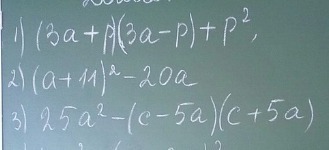 1) (3a+p)(3a-p)+p²,
2) (a+11)²-20a
3) 25a²-(c-5a)(c+5a)